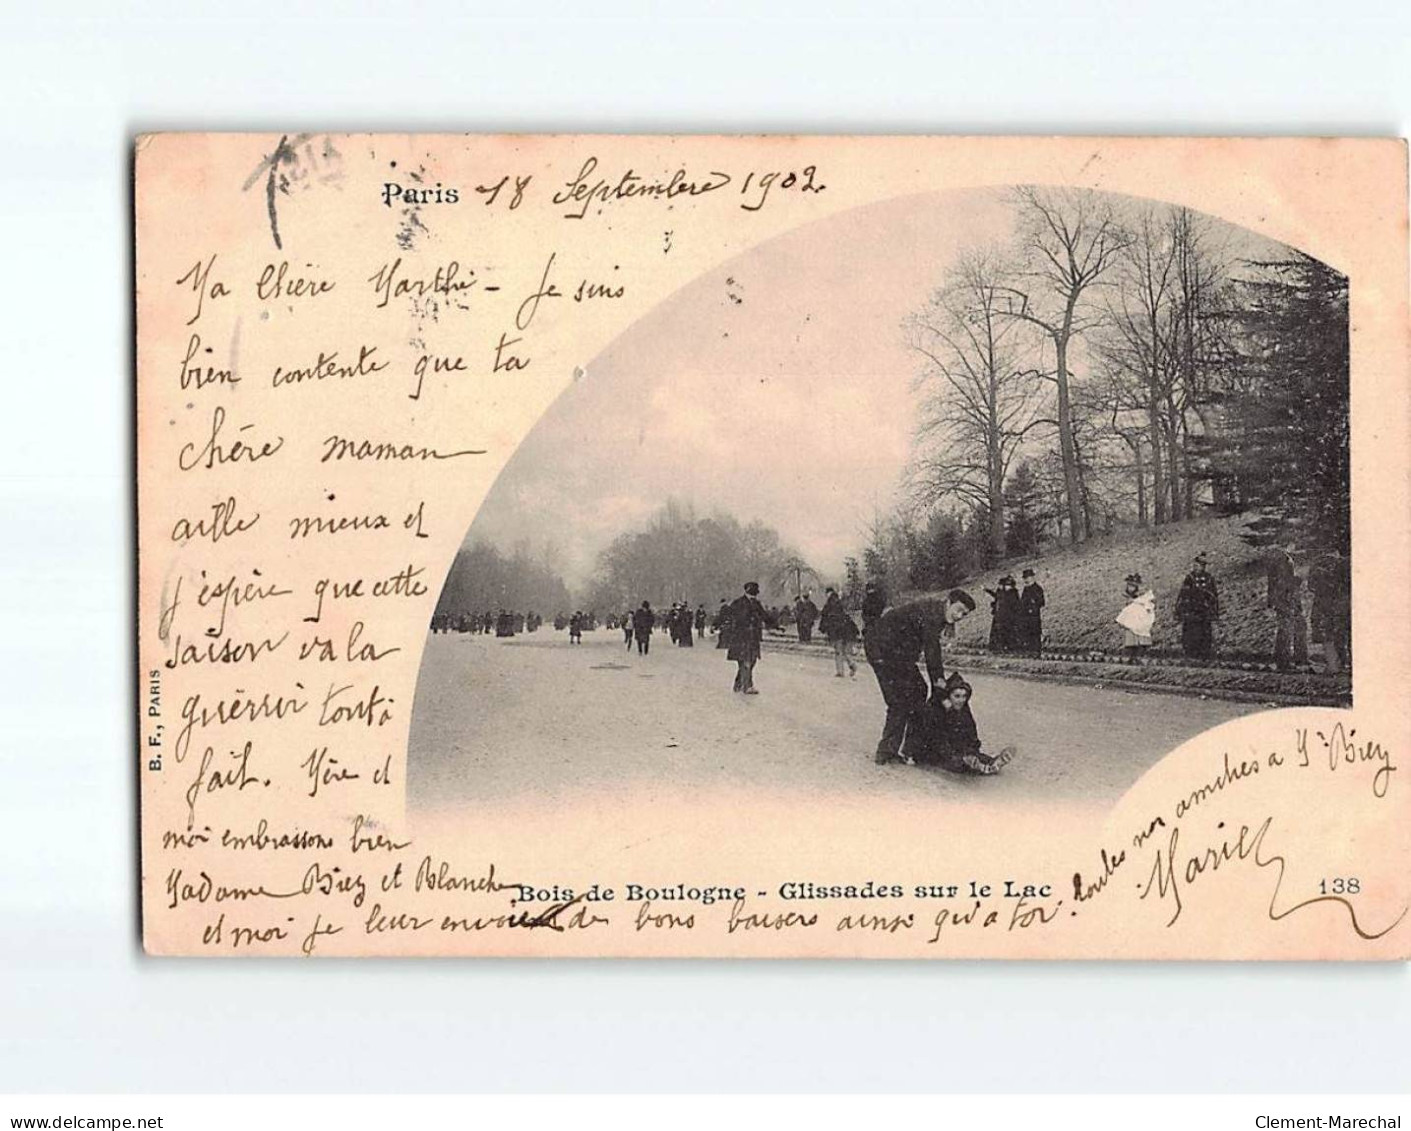 Paris 18 Septembre 1902.
Ma Chère Marthe - Je suis
bien contente que ta
chère maman
aille mieux et
j'espère que cette
saison va la
guérrir tout à
fait. Mère et
moi embrassons bien
Madame Biez et Blanche
et moi je leur envoie des bons baisers ainsi qu'à toi.
toutes nos amitiés a Mr Biez
Marie
B. F., PARIS
Bois de Boulogne - Glissades sur le Lac
138
delcampe.net
Clement-Marechal